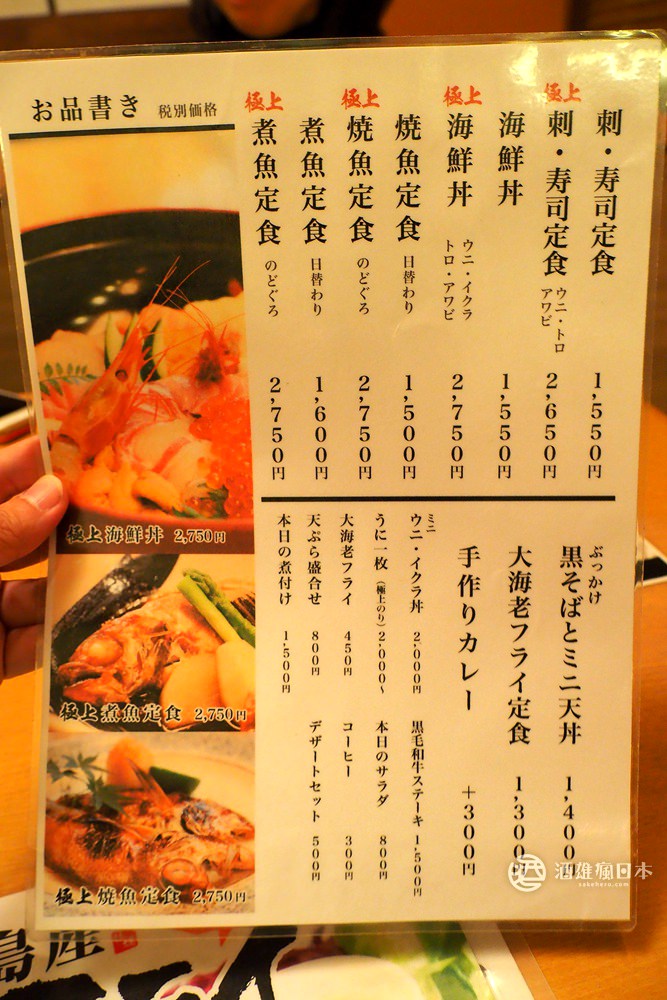 お品書き 税別価格
刺・寿司定食 1,550円
極上
刺・寿司定食 ウニ・トロ
アワビ
2,650円
海鮮丼 1,550円
極上
海鮮丼 ウニ・イクラ
トロ・アワビ
2,750円
焼魚定食 日替わり 1,500円
極上
焼魚定食 のどぐろ 2,750円
煮魚定食 日替わり 1,600円
極上
煮魚定食 のどぐろ 2,750円
ぶっかけ
黒そばとミニ天丼 1,400円
大海老フライ定食 1,300円
手作りカレー +300円
ミニ
ウニ・イクラ丼 2,000円
うに一枚(極上のり) 2,000~
大海老フライ 450円
天ぷら盛合せ 800円
本日の煮付け 1,500円
黒毛和牛ステーキ 1,500円
本日のサラダ 800円
コーヒー 300円
デザートセット 500円
極上海鮮丼 2,750円
極上煮魚定食 2,750円
極上焼魚定食 2,750円
酒雄瘋日本
sakehero.com
島産